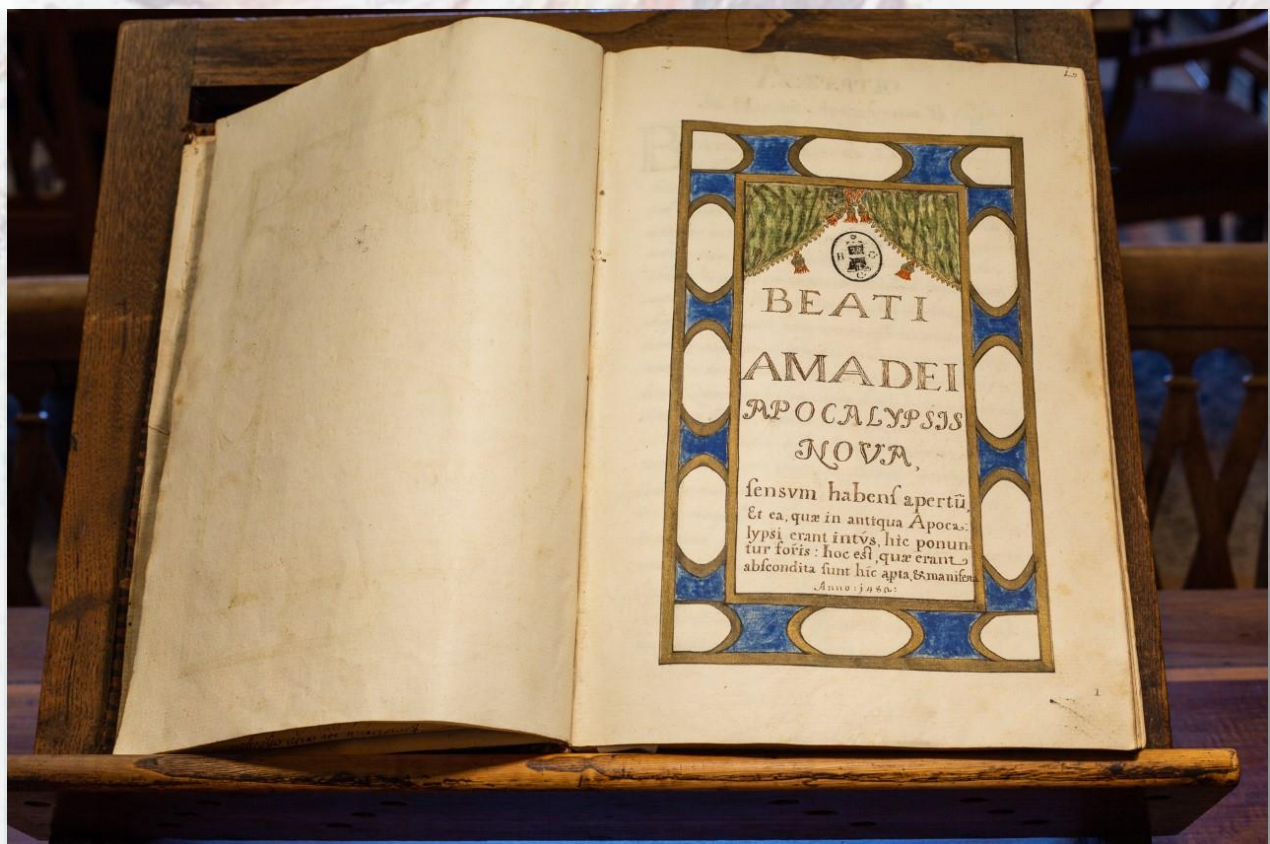 BEATI
AMADEI
APOCALYPSIS
NOVA,
ſensvm habenſ apertū,
Et ea, quæ in antiqua Apoca:
lypsi erant intvs, hic ponun
tur foris: hoc est, quæ erant
abſcondita ſunt hic apta, & manifesta
Anno: 1482:
1